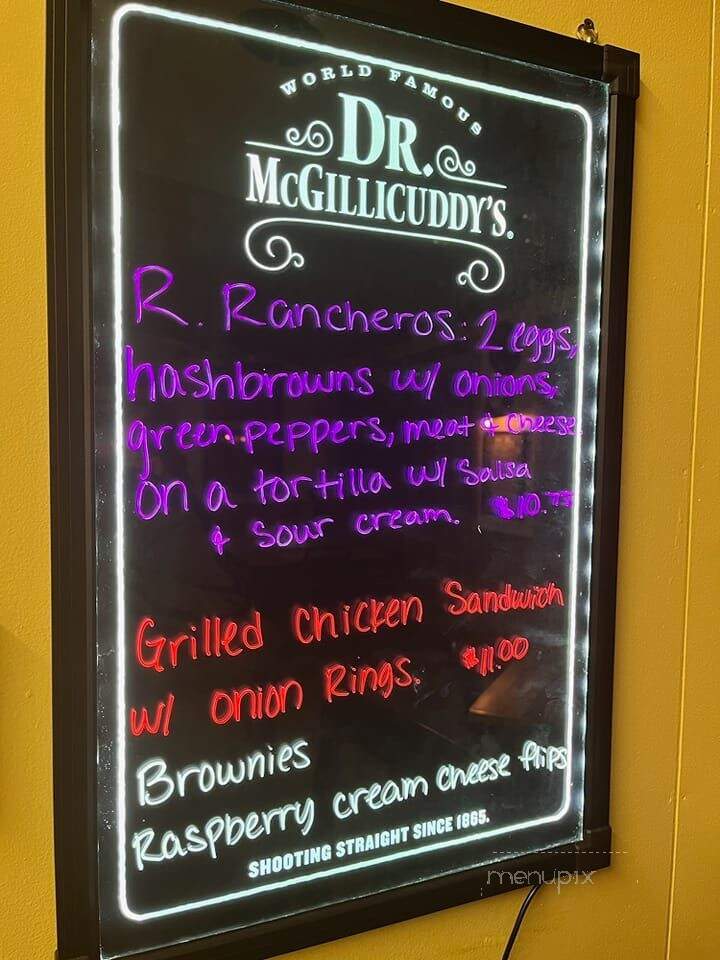 WORLD FAMOUS
DR.
McGILLICUDDY'S.
R. Rancheros: 2 eggs,
hashbrowns w/ onions,
green peppers, meat & cheese
on a tortilla w/ Salsa
& Sour cream. $10.75
Grilled Chicken Sandwich
w/ onion Rings. $11.00
Brownies
Raspberry cream cheese flips
SHOOTING STRAIGHT SINCE 1865.
menupix